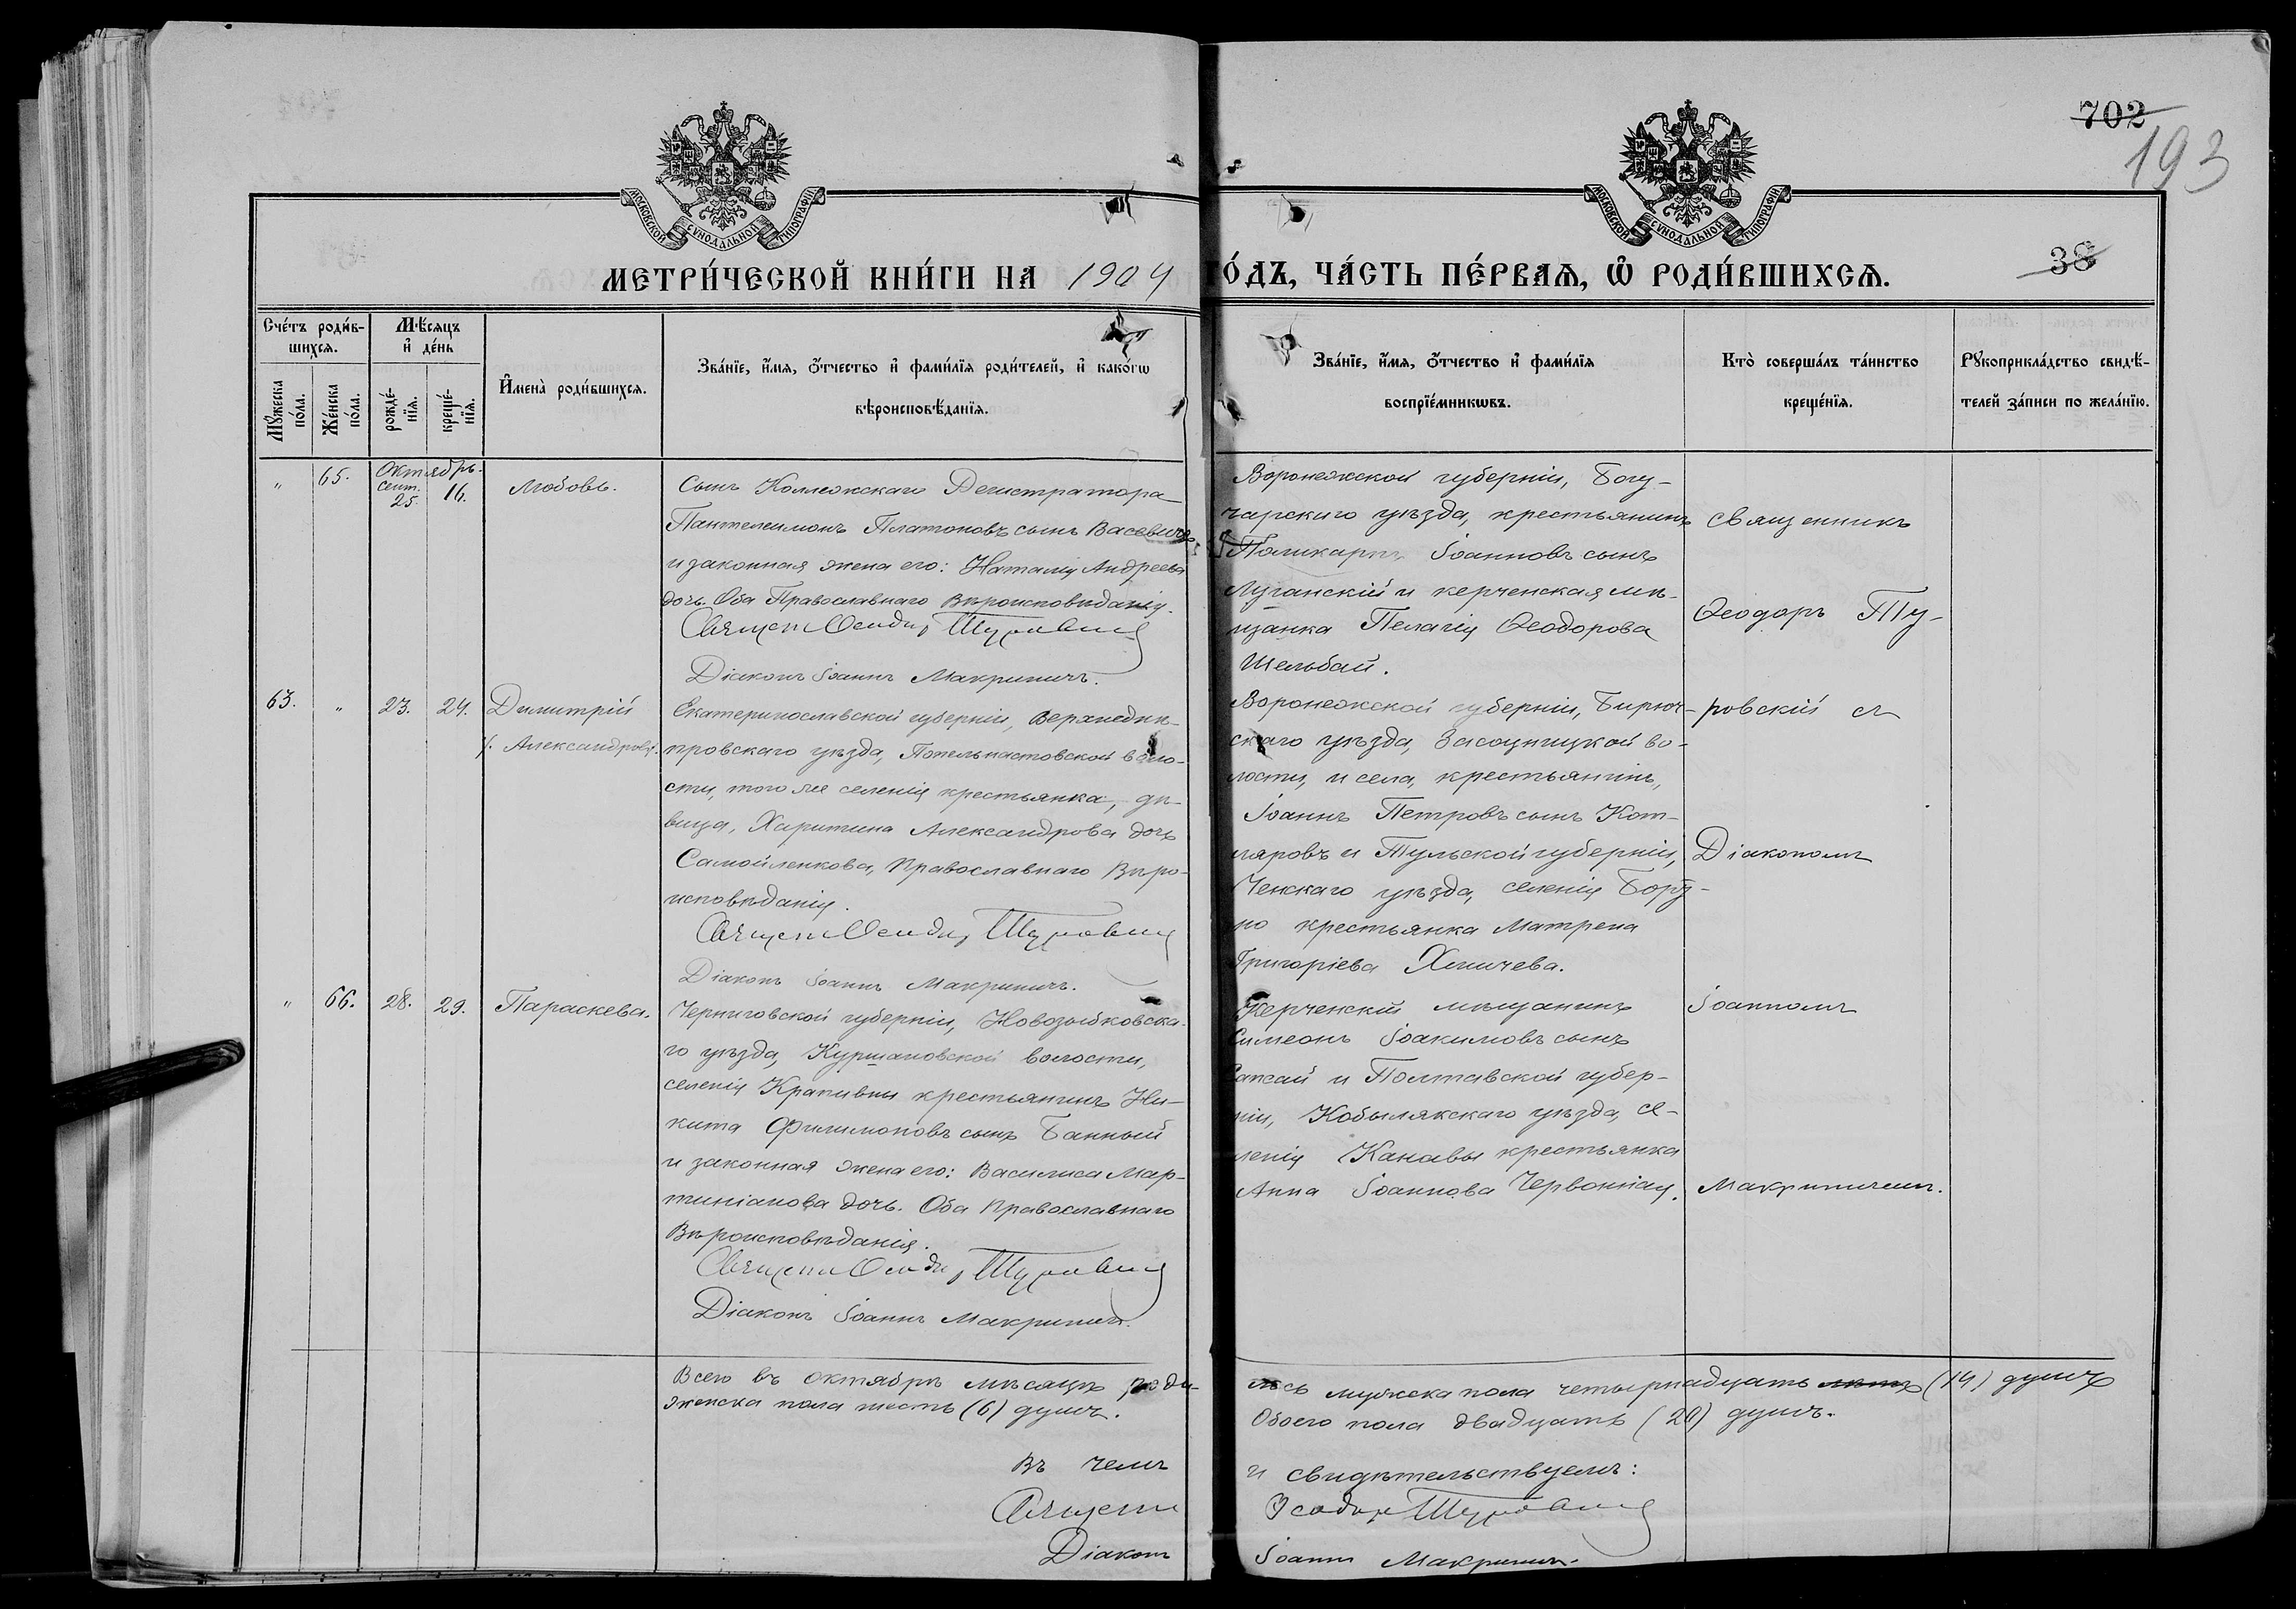 702
193
38
МОСКОВСКОЙ СѴНОДАЛЬНОЙ ТИПОГРАФІИ
МОСКОВСКОЙ СѴНОДАЛЬНОЙ ТИПОГРАФІИ
МЕТРИ́ЧЕСКОЙ КНИ́ГИ НА 1904 ГО́ДЪ, ЧА́СТЬ ПЕ́РВАЯ, Ѡ РОДИ́ВШИХСЯ.
Сче́тъ роди́в-
шихся.
Мꙋ́жеска по́ла.
Же́нска по́ла.
Мѣ́сяцъ
и҆ де́нь
рожде́-
нїя.
креще́-
нїя.
И҆мена̀ роди́вшихся.
Зва́нїе, и҆́мя, ѻ҆́тчество и҆ фами́лїя роди́телей, и҆ како́гѡ
вѣроисповѣ́данїя.
Зва́нїе, и҆́мя, ѻ҆́тчество и҆ фами́лїя
воспрїе́мникѡвъ.
Кто̀ соверша́лъ та́инство
креще́нїя.
Рꙋкоприкла́дство свидѣ́-
телей за́писи по жела́нїю.
Октябрь.
" 65. Сент. 25. 16. Любовь.
Сынъ Коллежскаго Регистратора
Пантелеимонъ Платоновъ сынъ Васевичъ
и законная жена его: Наталія Андреева
дочь. Оба Православнаго Вѣроисповѣданія.
Священ. Ѳеодоръ Туровскій
Діаконъ Іоаннъ Макриничъ.
Воронежской губерніи, Богу-
чарскаго уѣзда, крестьянинъ
Поликарпъ Іоанновъ сынъ
Луганскій и керченская мѣ-
щанка Пелагія Ѳеодорова
Шельбай.
Священникъ
Ѳеодоръ Ту-
63. " 23. 24. Димитрій
Александровъ.
Екатеринославской губерніи, Верхнеднѣ-
провскаго уѣзда, воло-
сти, того же селенія крестьянка, дѣ-
вица, Харитина Александрова дочь
Самойленкова, Православнаго Вѣро-
исповѣданія.
Священ. Ѳеодоръ Туровскій
Діаконъ Іоаннъ Макриничъ.
Воронежской губерніи, Бирюч-
скаго уѣзда, во-
лости, и села, крестьянинъ,
Іоаннъ Петровъ сынъ Кот-
ляровъ и Тульской губерніи,
уѣзда, селенія
крестьянка Матрена
Григоріева Хмычева.
ровскій съ
Діакономъ
" 66. 28. 29. Параскева.
Черниговской губерніи, Новозыбковска-
го уѣзда, Куршановской волости,
селенія Крапивны крестьянинъ Ни-
кита Филимоновъ сынъ Банный
и законная жена его: Василиса Мар-
тиніанова дочь. Оба Православнаго
Вѣроисповѣданія.
Священ. Ѳеодоръ Туровскій
Діаконъ Іоаннъ Макриничъ.
Керченскій мѣщанинъ
Симеонъ Іоакимовъ сынъ
и Полтавской губер-
ніи, Кобылякскаго уѣзда, се-
ленія Канавы крестьянка
Анна Іоаннова Червонная.
Іоанномъ
Макриничемъ.
Всего въ октябрѣ мѣсяцѣ роди-
лось мужска пола четырнадцать (14) душъ
женска пола шесть (6) душъ.
Обоего пола двадцать (20) душъ.
Въ чемъ и свидѣтельствуемъ:
Священ. Ѳеодоръ Туровскій
Діаконъ Іоаннъ Макриничъ.